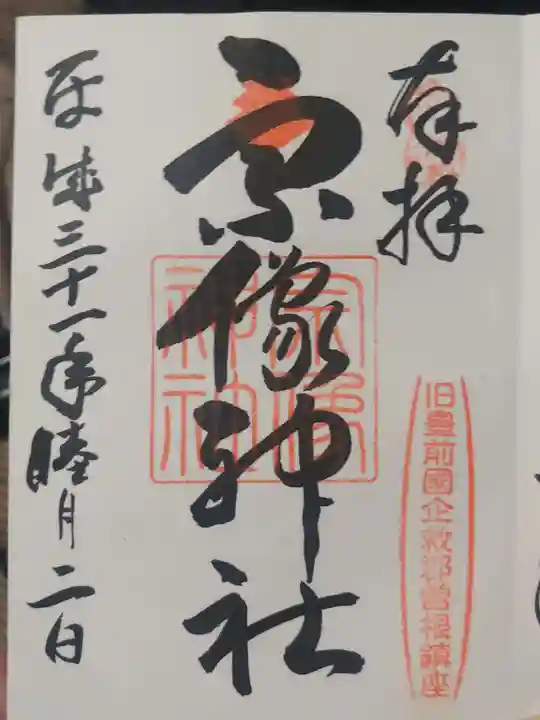 奉拝
旧豊前國企救郡曽根鎮座
宗像神社
宗像
神社
平成三十一年睦月二日